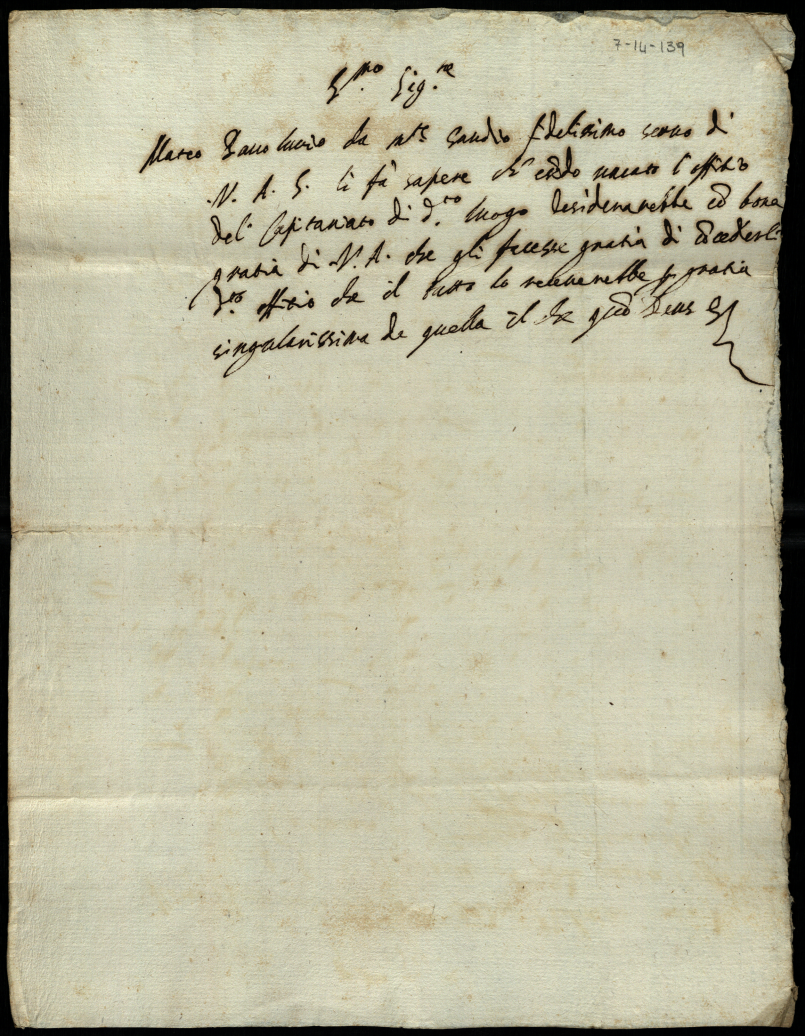 7-14-139
S.mo Sig.re
Marco da m.te Gaudio fidelissimo servo di
V. A. S. li fà sapere ch' essēdo vacato l'offitio
del Capitaniato di d.to luogo desiderarebbe cō bona
gratia di V. A. che gli facesse gratia di cōcederli
d.to offitio che il tutto lo receverebbe p gratia
singularissima de quella il che Deus